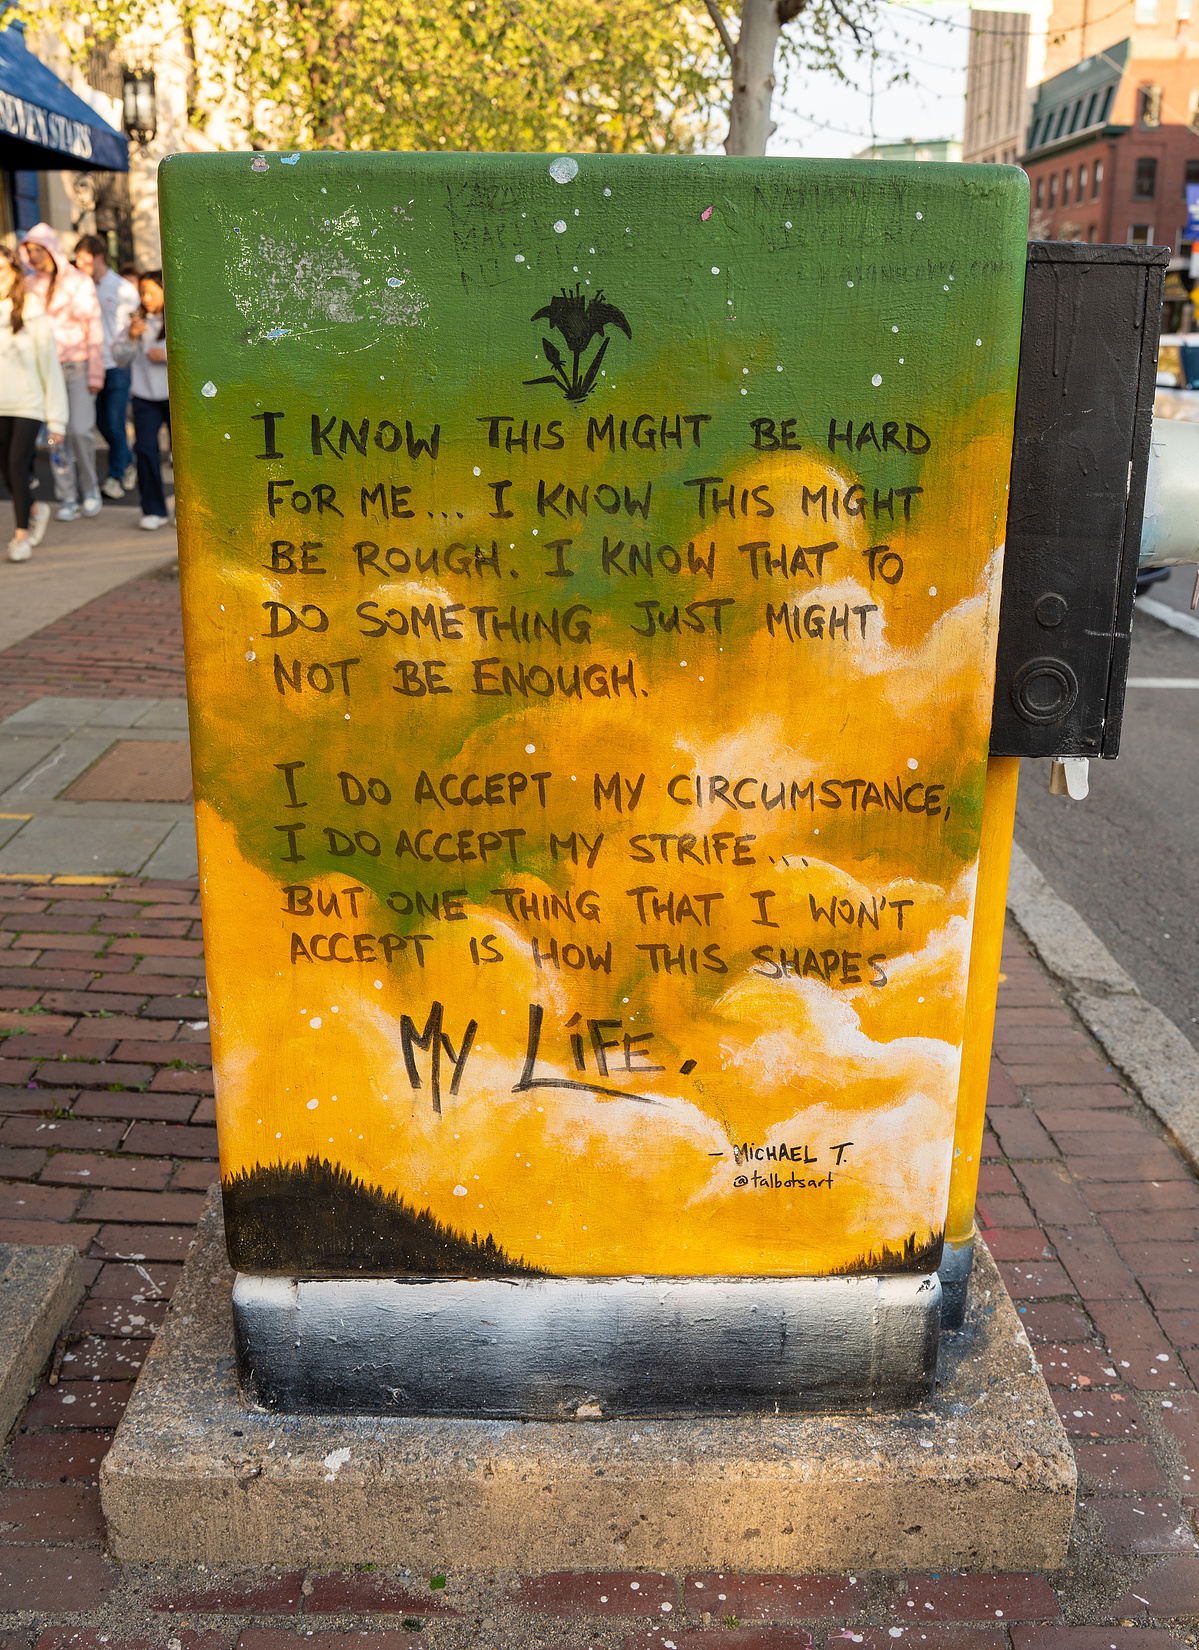 SEVEN STARS
I KNOW THIS MIGHT BE HARD
FOR ME... I KNOW THIS MIGHT
BE ROUGH. I KNOW THAT TO
DO SOMETHING JUST MIGHT
NOT BE ENOUGH.
I DO ACCEPT MY CIRCUMSTANCE,
I DO ACCEPT MY STRIFE...
BUT ONE THING THAT I WON'T
ACCEPT IS HOW THIS SHAPES
MY LiFE.
- MiCHAEL T.
@talbotsart